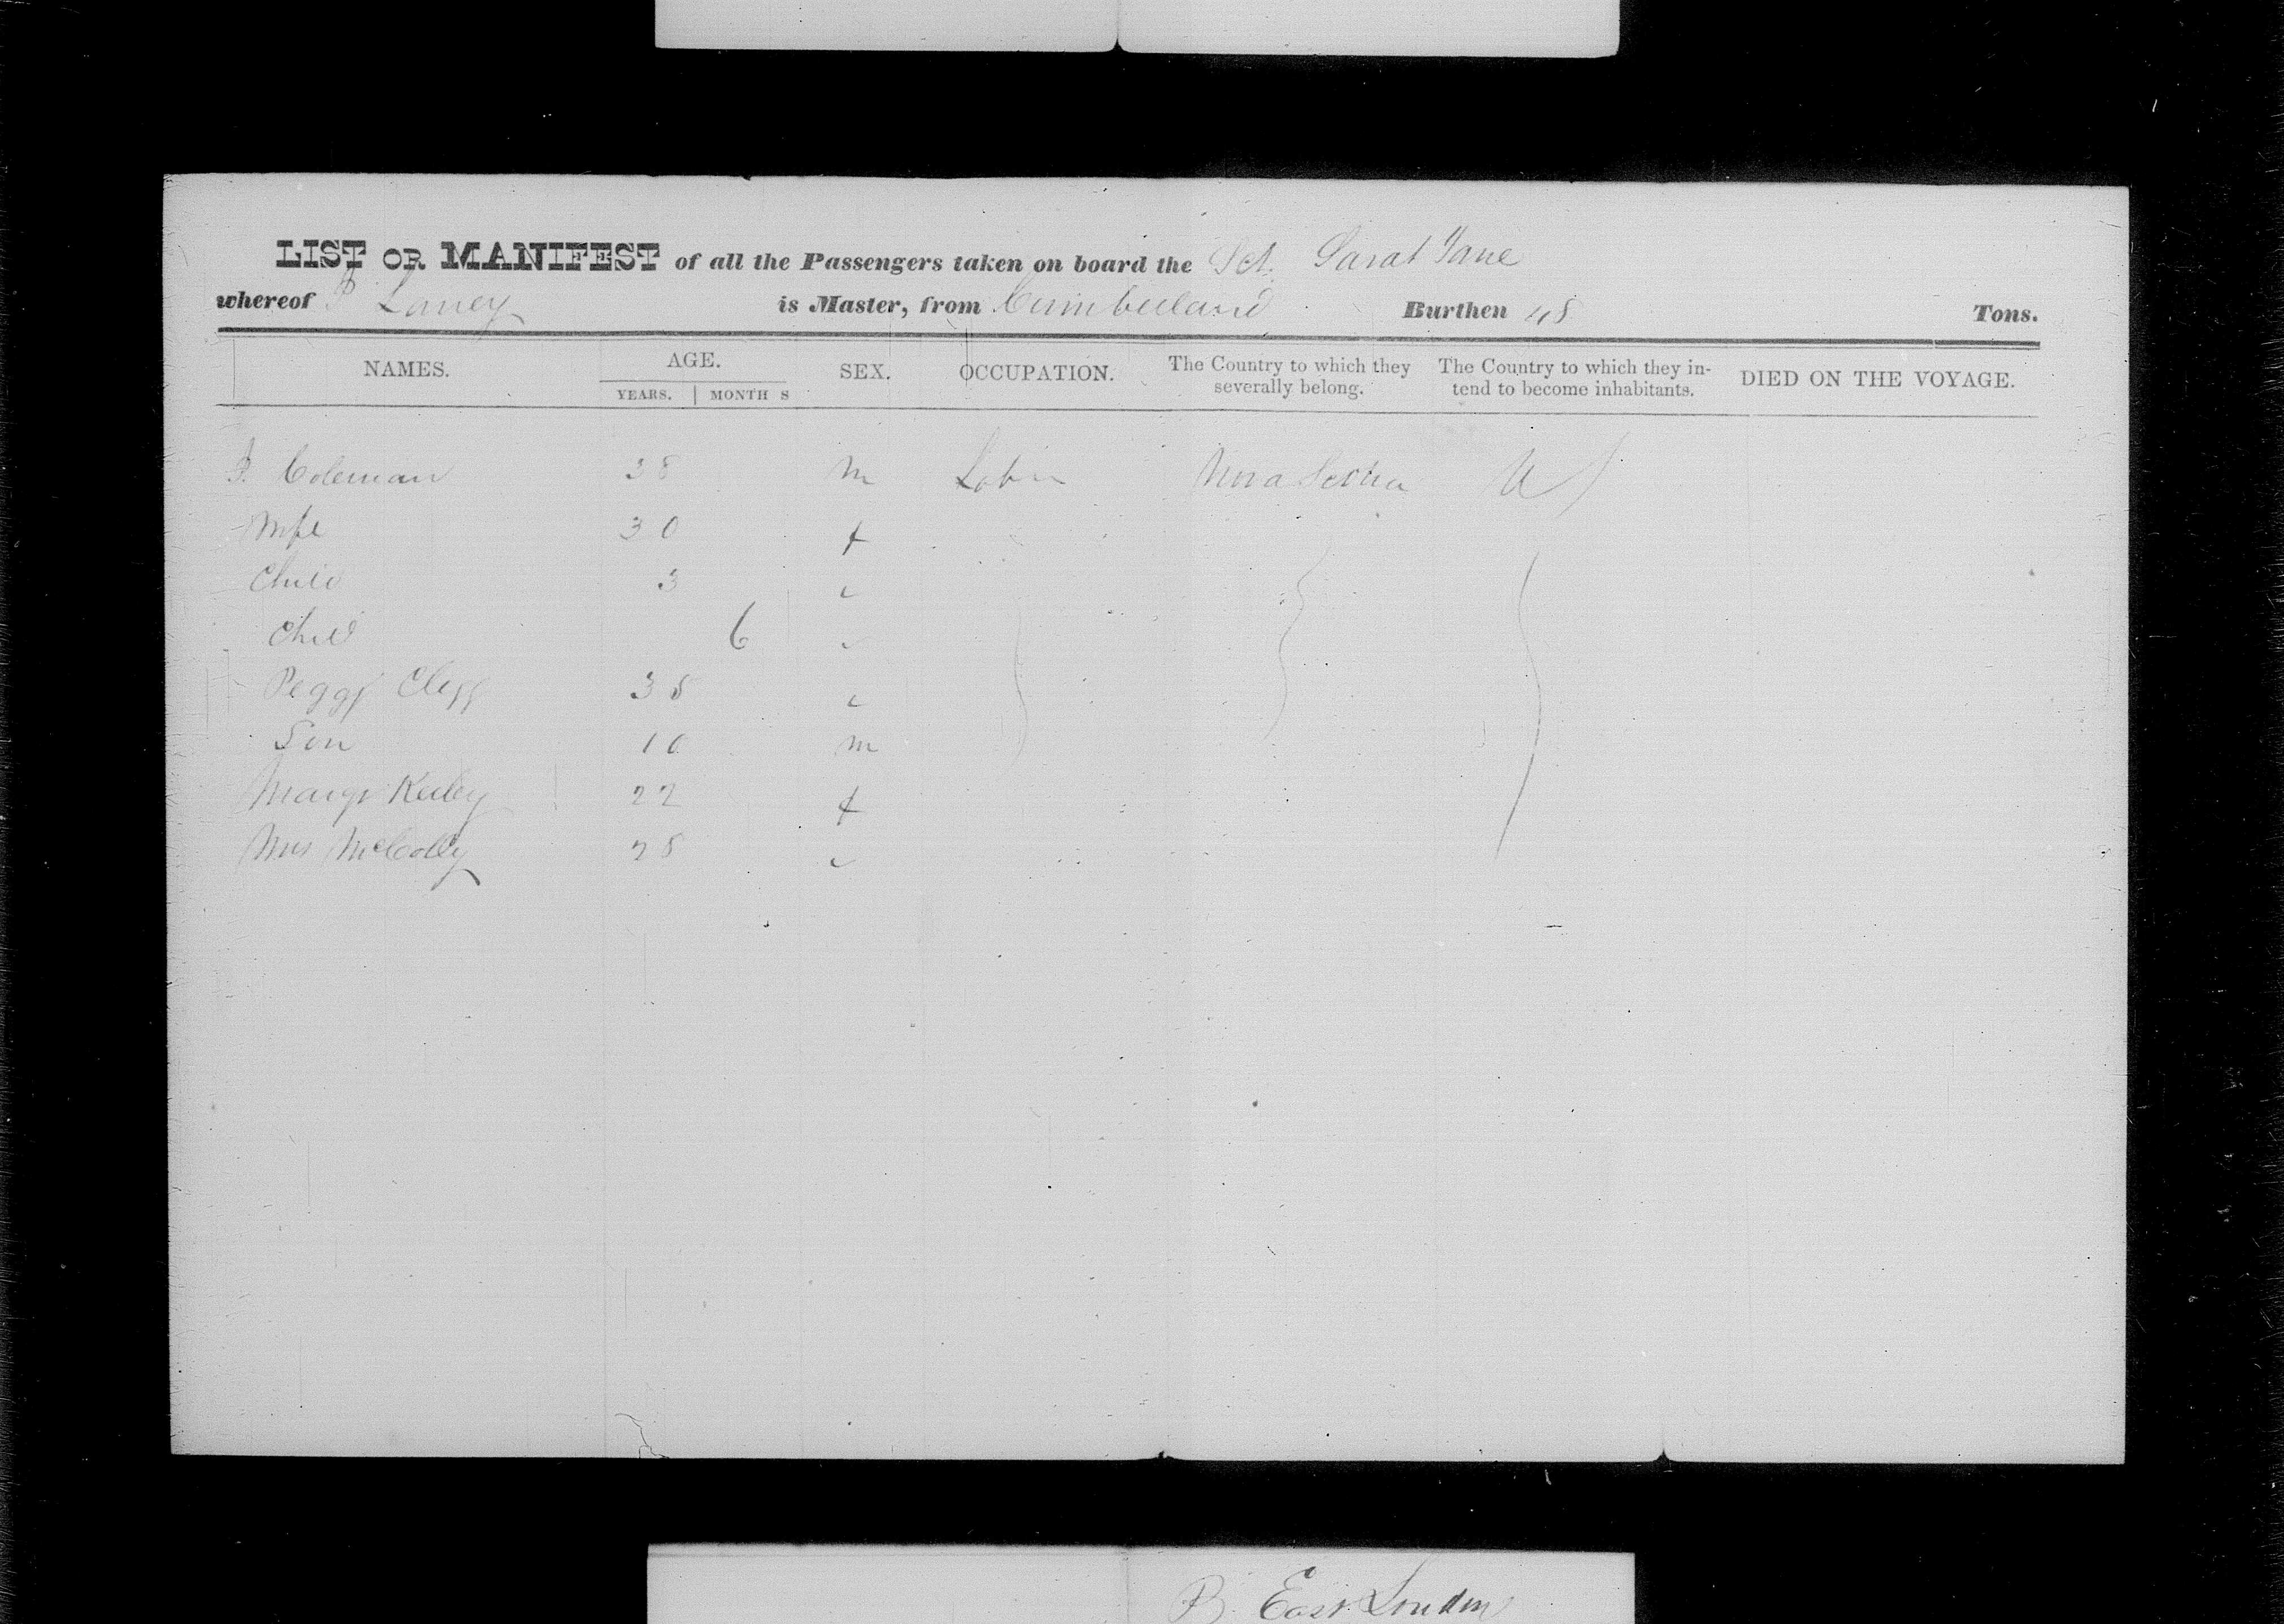 LIST OR MANIFEST of all the Passengers taken on board the Sch. Sarah Jane
whereof P Laney is Master, from Cumberland Burthen 48 Tons.
NAMES. AGE. SEX. OCCUPATION. The Country to which they severally belong. The Country to which they intend to become inhabitants. DIED ON THE VOYAGE.
YEARS. MONTHS
Coleman 38 m Labr Nova Scotia US
Wife 30 f
Child 3 "
Child 6 "
Peggy Clegg 38 "
Son 10 m
Margt Kelley 22 f
Mrs McColly 28 "
B. East London